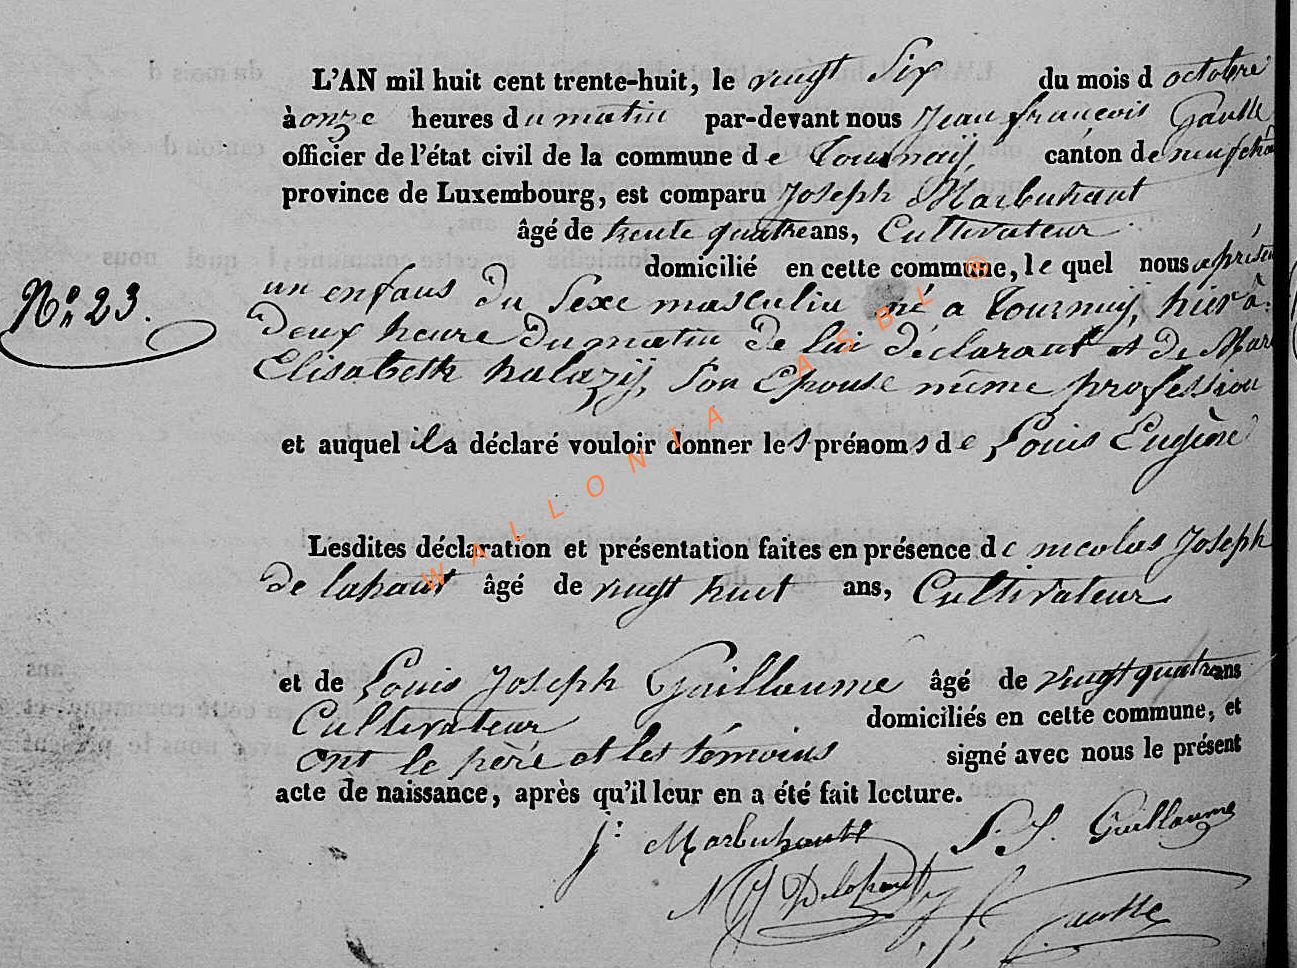 L'AN mil huit cent trente-huit, le vingt Six du mois d octobre
à onze heures du matin par-devant nous Jean françois Gaulle
officier de l'état civil de la commune de Tournaij, canton de neufchâ
province de Luxembourg, est comparu Joseph Marbuhant
âgé de trente quatre ans, Cultivateur
domicilié en cette commune, le quel nous a présen
No. 23.
un enfans du Sexe masculin né a Tournaij, hier à
Deux heure du matin de lui déclarant et de Mari
Elisabeth halazij, Son Epouse même profession
et auquel il a déclaré vouloir donner les prénoms de Louis Eugène
Lesdites déclaration et présentation faites en présence de nicolas Joseph
De lahaut âgé de vingt huit ans, Cultivateur
et de Louis Joseph Guillaume âgé de vingt quatre ans
Cultivateur domiciliés en cette commune, et
ont le père et les témoins signé avec nous le présent
acte de naissance, après qu'il leur en a été fait lecture.
J: Marbuhant L. J. Guillaume
N J Delahaut J. f. Gaulle
WALLONIA ASBL ®